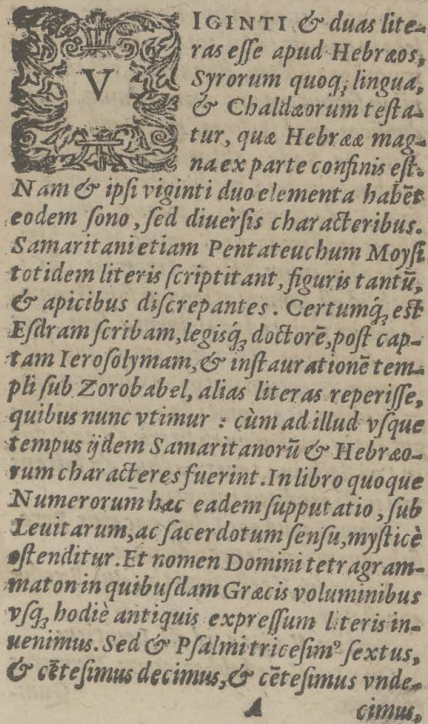 VIGINTI & duas lite-
ras eſſe apud Hebræos,
Syrorum quoq; lingua,
& Chaldæorum teſta-
tur, quæ Hebrææ mag-
na ex parte confinis eſt.
Nam & ipſi viginti duo elementa habēt
eodem ſono, ſed diuerſis characteribus.
Samaritani etiam Pentateuchum Moyſi
totidem literis ſcriptitant, figuris tantū,
& apicibus diſcrepantes. Certumq́; eſt
Eſdram ſcribam, legisq́; doctorē, poſt cap-
tam Ieroſolymam, & inſtaurationē tem-
pli ſub Zorobabel, alias literas reperiſſe,
quibus nunc vtimur : cùm ad illud vſque
tempus ijdem Samaritanorū & Hebræo-
rum characteres fuerint. In libro quoque
Numerorum hæc eadem ſupputatio, ſub
Leuitarum, ac ſacerdotum ſenſu, myſticè
oſtenditur. Et nomen Domini tetragram-
maton in quibuſdam Græcis voluminibus
vſq; hodiè antiquis expreſſum literis in-
uenimus. Sed & Pſalmi triceſimꝰ ſextus,
& cēteſimus decimus, & cēteſimus vnde-
A cimus,